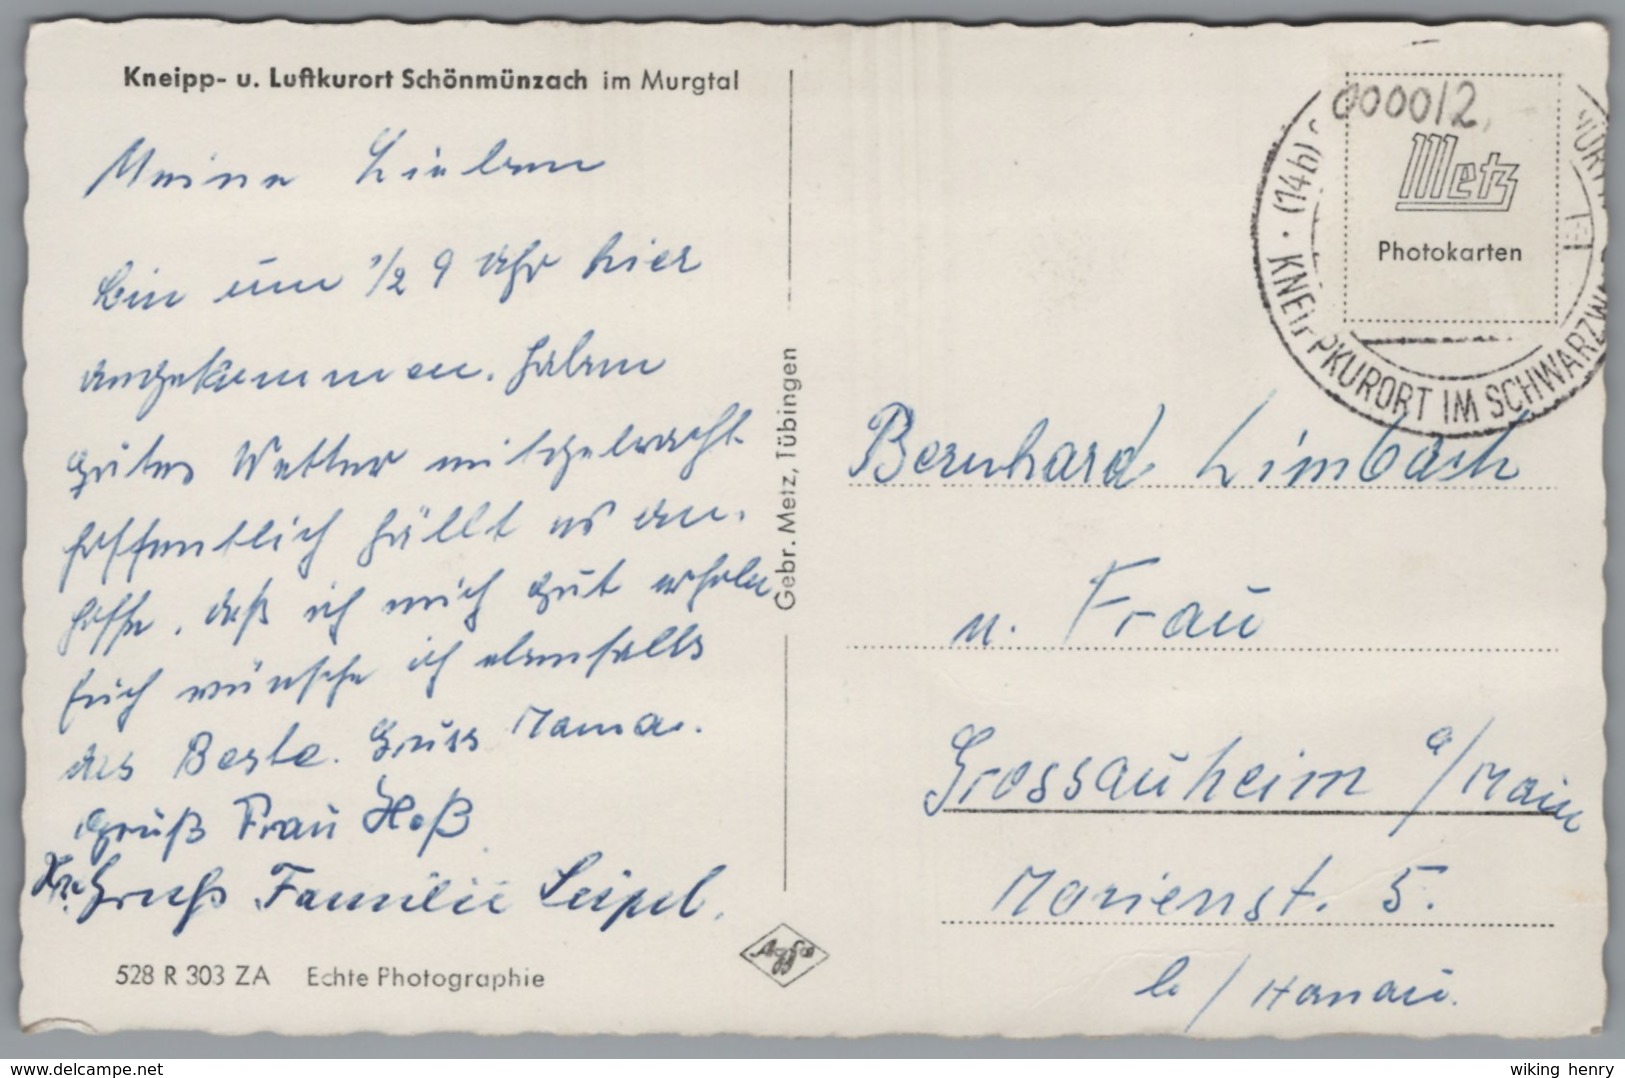 Kneipp- u. Luftkurort Schönmünzach im Murgtal
Meine Lieben
bin um 1/2 9 Uhr hier
angekommen. Haben
gutes Wetter mitgebracht.
hoffentlich hällt es an.
hoffe, daß ich mich gut erholn
Euch wünsche ich ebenfalls
das Beste. Gruss Mama.
Gruß Frau Hoß
Gruß Familie Seipel.
528 R 303 ZA Echte Photographie
Gebr. Metz, Tübingen
Agfa
000012
Metz
Photokarten
(14b)
KNEIPPKURORT IM SCHWARZWA
Bernhard Limbach
u. Frau
Grossauheim a/Main
Marienst. 5.
b/Hanau.
wiking henry
www.delcampe.net